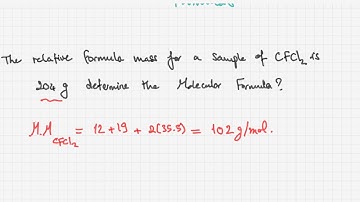 The relative formula mass for a sample of CFCl₂ is
204 g determine the Molecular Formula?
M.M CFCl₂ = 12 + 19 + 2(35.5) = 102 g/mol.